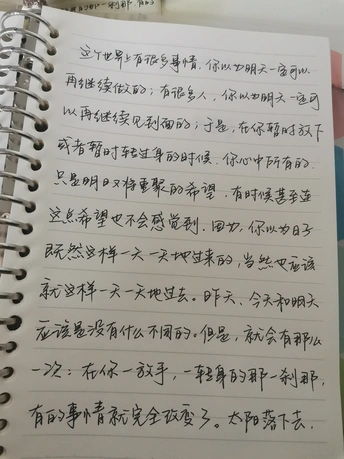 这个世界上有很多事情,你以为明天一定可以
再继续做的;有很多人,你以为明天一定可
以再继续见到面的;于是,在你暂时放下
或者暂时转过身的时候,你心中所有的,
只是明日又将重聚的希望,有时候甚至连
这点希望也不会感觉到.因为,你以为日子
既然这样一天一天地过来的,当然也应该
就这样一天一天地过去。昨天、今天和明天
应该是没有什么不同的。但是,就会有那么
一次:在你一放手,一转身的那一刹那,
有的事情就完全改变了。太阳落下去,